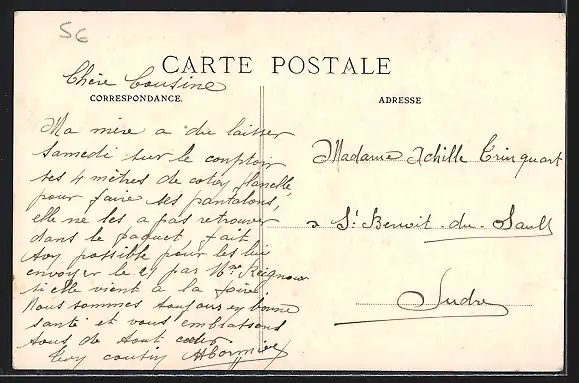 56
CARTE POSTALE
Chère Cousine
CORRESPONDANCE.
ADRESSE
Ma mère a du laisser
samedi sur le comptoir
ses 4 mètres de coton flanelle
pour faire ses pantalons,
elle ne les a pas retrouver
dans le paquet fait
possible pour les lui
envoyer le 27 par Mme
si elle vient à la foire
Nous sommes toujours en bonne
santé et vous embrassons
tous de tout cœur
cousin
Madame Achille Trinquart
à St Benoit-du-Sault
Indre